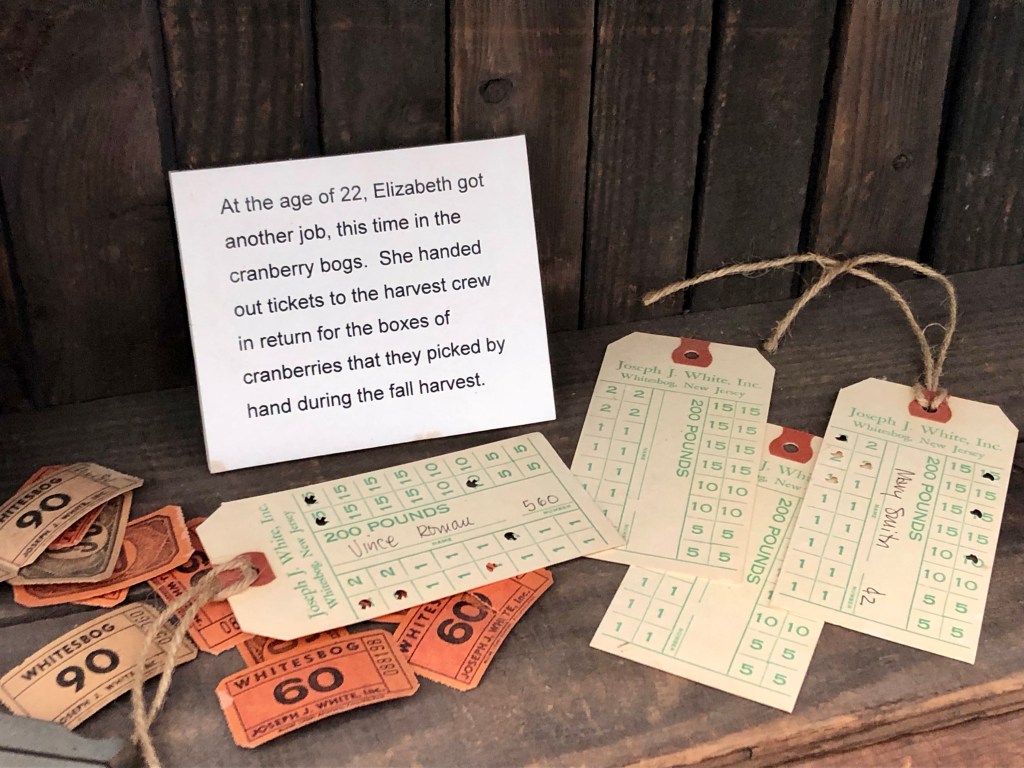 At the age of 22, Elizabeth got
another job, this time in the
cranberry bogs. She handed
out tickets to the harvest crew
in return for the boxes of
cranberries that they picked by
hand during the fall harvest.
WHITESBOG
90
WHITESBOG
90
JOSEPH J. WHITE, Inc.
WHITESBOG
60
JOSEPH J. WHITE, Inc.
088198
60
JOSEPH J. WHITE, Inc.
Joseph J. White, Inc.
Whitesbog, New Jersey
15 15 15 10 10 5 5
15 15 15 10 10 5 5
200 POUNDS
Vince Roman 560
NAME NUMBER
2 2 1 1 1 1 1
1 1 1 1 1
Joseph J. White, Inc.
Whitesbog, New Jersey
200 POUNDS
2 2 15 15
2 2 15 15
1 1 15 15
1 1 15 15
1 1 10 10
1 1 10 10
5 5
5 5
J. White
200 POUNDS
1 1 10 10
1 1 5 5
1 1 5 5
Joseph J. White, Inc.
Whitesbog, New Jersey
200 POUNDS
Nancy Smith 42
2 15
15 15
15 15
1 1 15
1 1 10
1 1 10 10
1 1 5 5
1 1 5 5